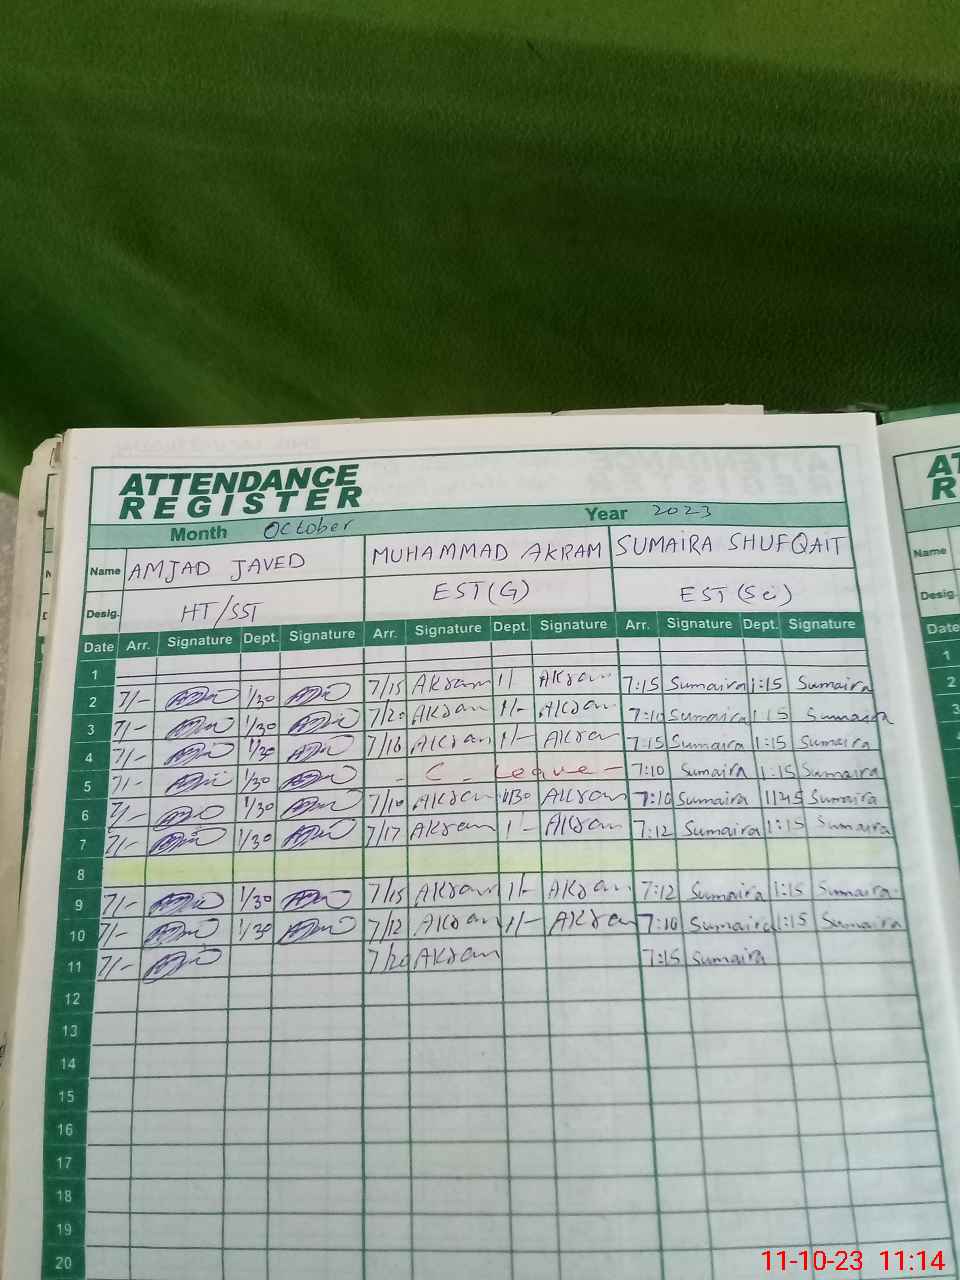 ATTENDANCE
REGISTER
Month October Year 2023
Name AMJAD JAVED MUHAMMAD AKRAM SUMAIRA SHUFQAIT
Desig. HT/SST EST(G) EST (Sc)
Date Arr. Signature Dept. Signature Arr. Signature Dept. Signature Arr. Signature Dept. Signature
1
2 7/- 1/30 7/15 Akram 1/- Akram 7:15 Sumaira 1:15 Sumaira
3 7/- 1/30 7/20 Akram 1/- Akram 7:10 Sumaira 1:15 Sumaira
4 7/- 1/30 7/16 Akram 1/- Akram 7:15 Sumaira 1:15 Sumaira
5 7/- 1/30 - C. Leave - 7:10 Sumaira 1:15 Sumaira
6 7/- 1/30 7/10 Akram 1/30 Akram 7:10 Sumaira 11:45 Sumaira
7 7/- 1/30 7/17 Akram 1/- Akram 7:12 Sumaira 1:15 Sumaira
8
9 7/- 1/30 7/15 Akram 1/- Akram 7:12 Sumaira 1:15 Sumaira
10 7/- 1/30 7/12 Akram 1/- Akram 7:10 Sumaira 1:15 Sumaira
11 7/- 7/20 Akram 7:15 Sumaira
12
13
14
15
16
17
18
19
20
AT
R
Name
Desig.
Date
1
2
3
11-10-23 11:14